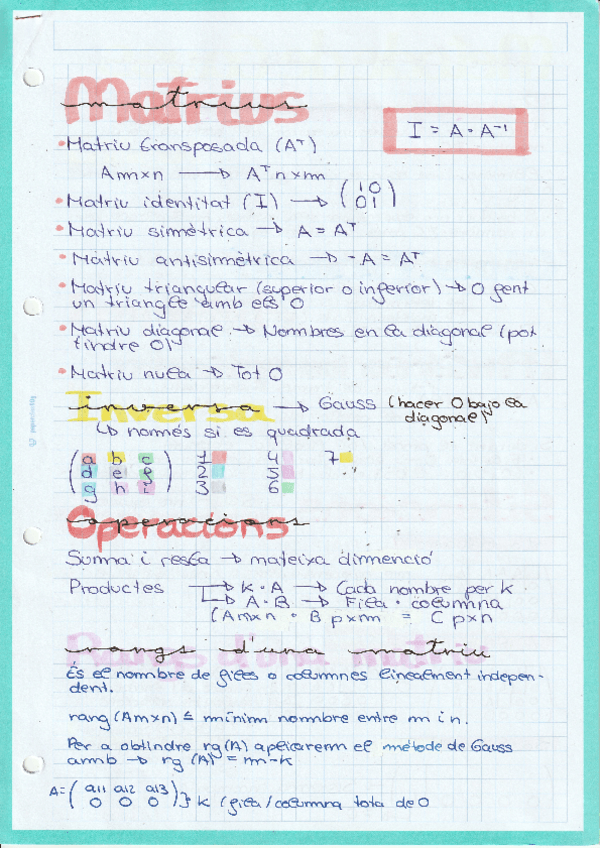 Matrius
matrius
I = A · A⁻¹
• Matriu transposada (Aᵀ)
Amxn → Aᵀnxm
• Matriu identitat (I) → (1 0
0 1)
• Matriu simètrica → A = Aᵀ
• Matriu antisimètrica → -A = Aᵀ
• Matriu triangular (superior o inferior) → 0 fent
un triangle amb els 0
• Matriu diagonal → Nombres en la diagonal (pot
tindre 0)
• Matriu nula → Tot 0
Inversa
inversa → Gauss (hacer 0 bajo la
diagonal)
↳ només si es quadrada
(a b c 1 4 7
d e f 2 5
g h i) 3 6
Operacions
operacions
Suma i resta → mateixa dimenció
Productes → K · A → Cada nombre per k
→ A · B → Fila · columna
(Amxn · Bpxm = Cpxn
Rangs d'una matriu
rangs d'una matriu
És el nombre de files o columnes linealment indepen-
dent.
rang (Amxn) ≤ mínim nombre entre m i n.
Per a obtindre rg(A) aplicarem el métode de Gauss
amb → rg (A) = m-k
A = (a11 a12 a13
0 0 0)} k (fila/columna tota de 0